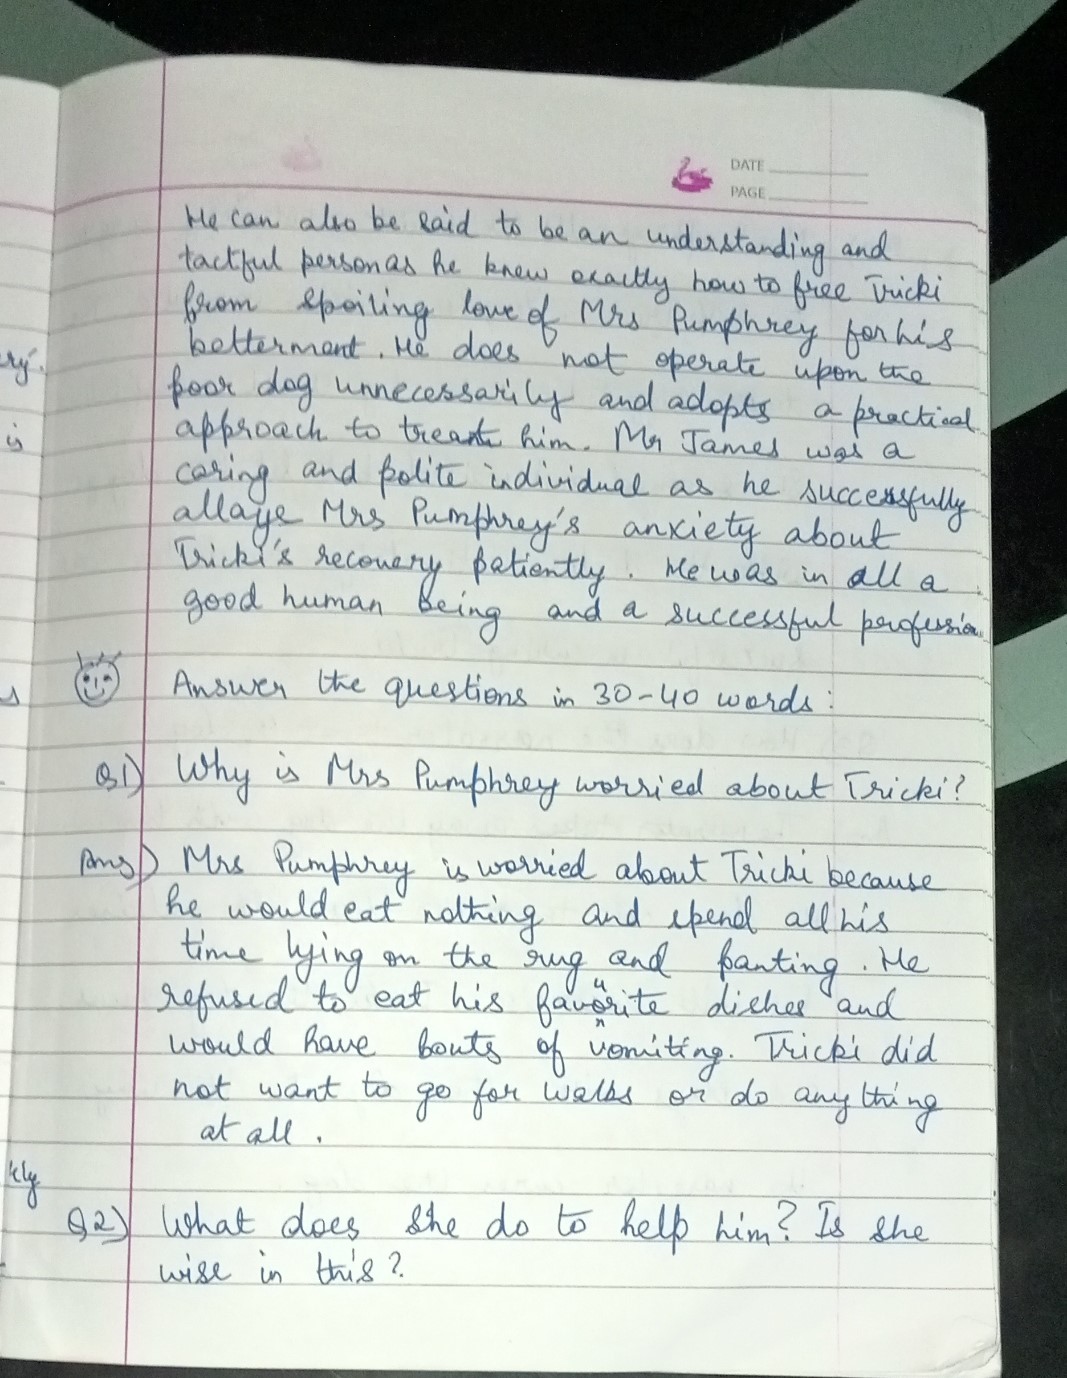 DATE
PAGE
He can also be said to be an understanding and
tactful person as he knew exactly how to free Tricki
from spoiling love of Mrs Pumphrey for his
betterment. He does not operate upon the
poor dog unnecessarily and adopts a practical
approach to treat him. Mr James was a
caring and polite individual as he successfully
allaye Mrs Pumphrey's anxiety about
Tricki's recovery patiently. He was in all a
good human being and a successful profession
Answer the questions in 30-40 words:
Q1) Why is Mrs Pumphrey worried about Tricki?
Ans) Mrs Pumphrey is worried about Tricki because
he would eat nothing and spend all his
time lying on the rug and panting. He
refused to eat his favourite dishes and
would have bouts of vomiting. Tricki did
not want to go for walks or do anything
at all.
Q2) What does she do to help him? Is she
wise in this?